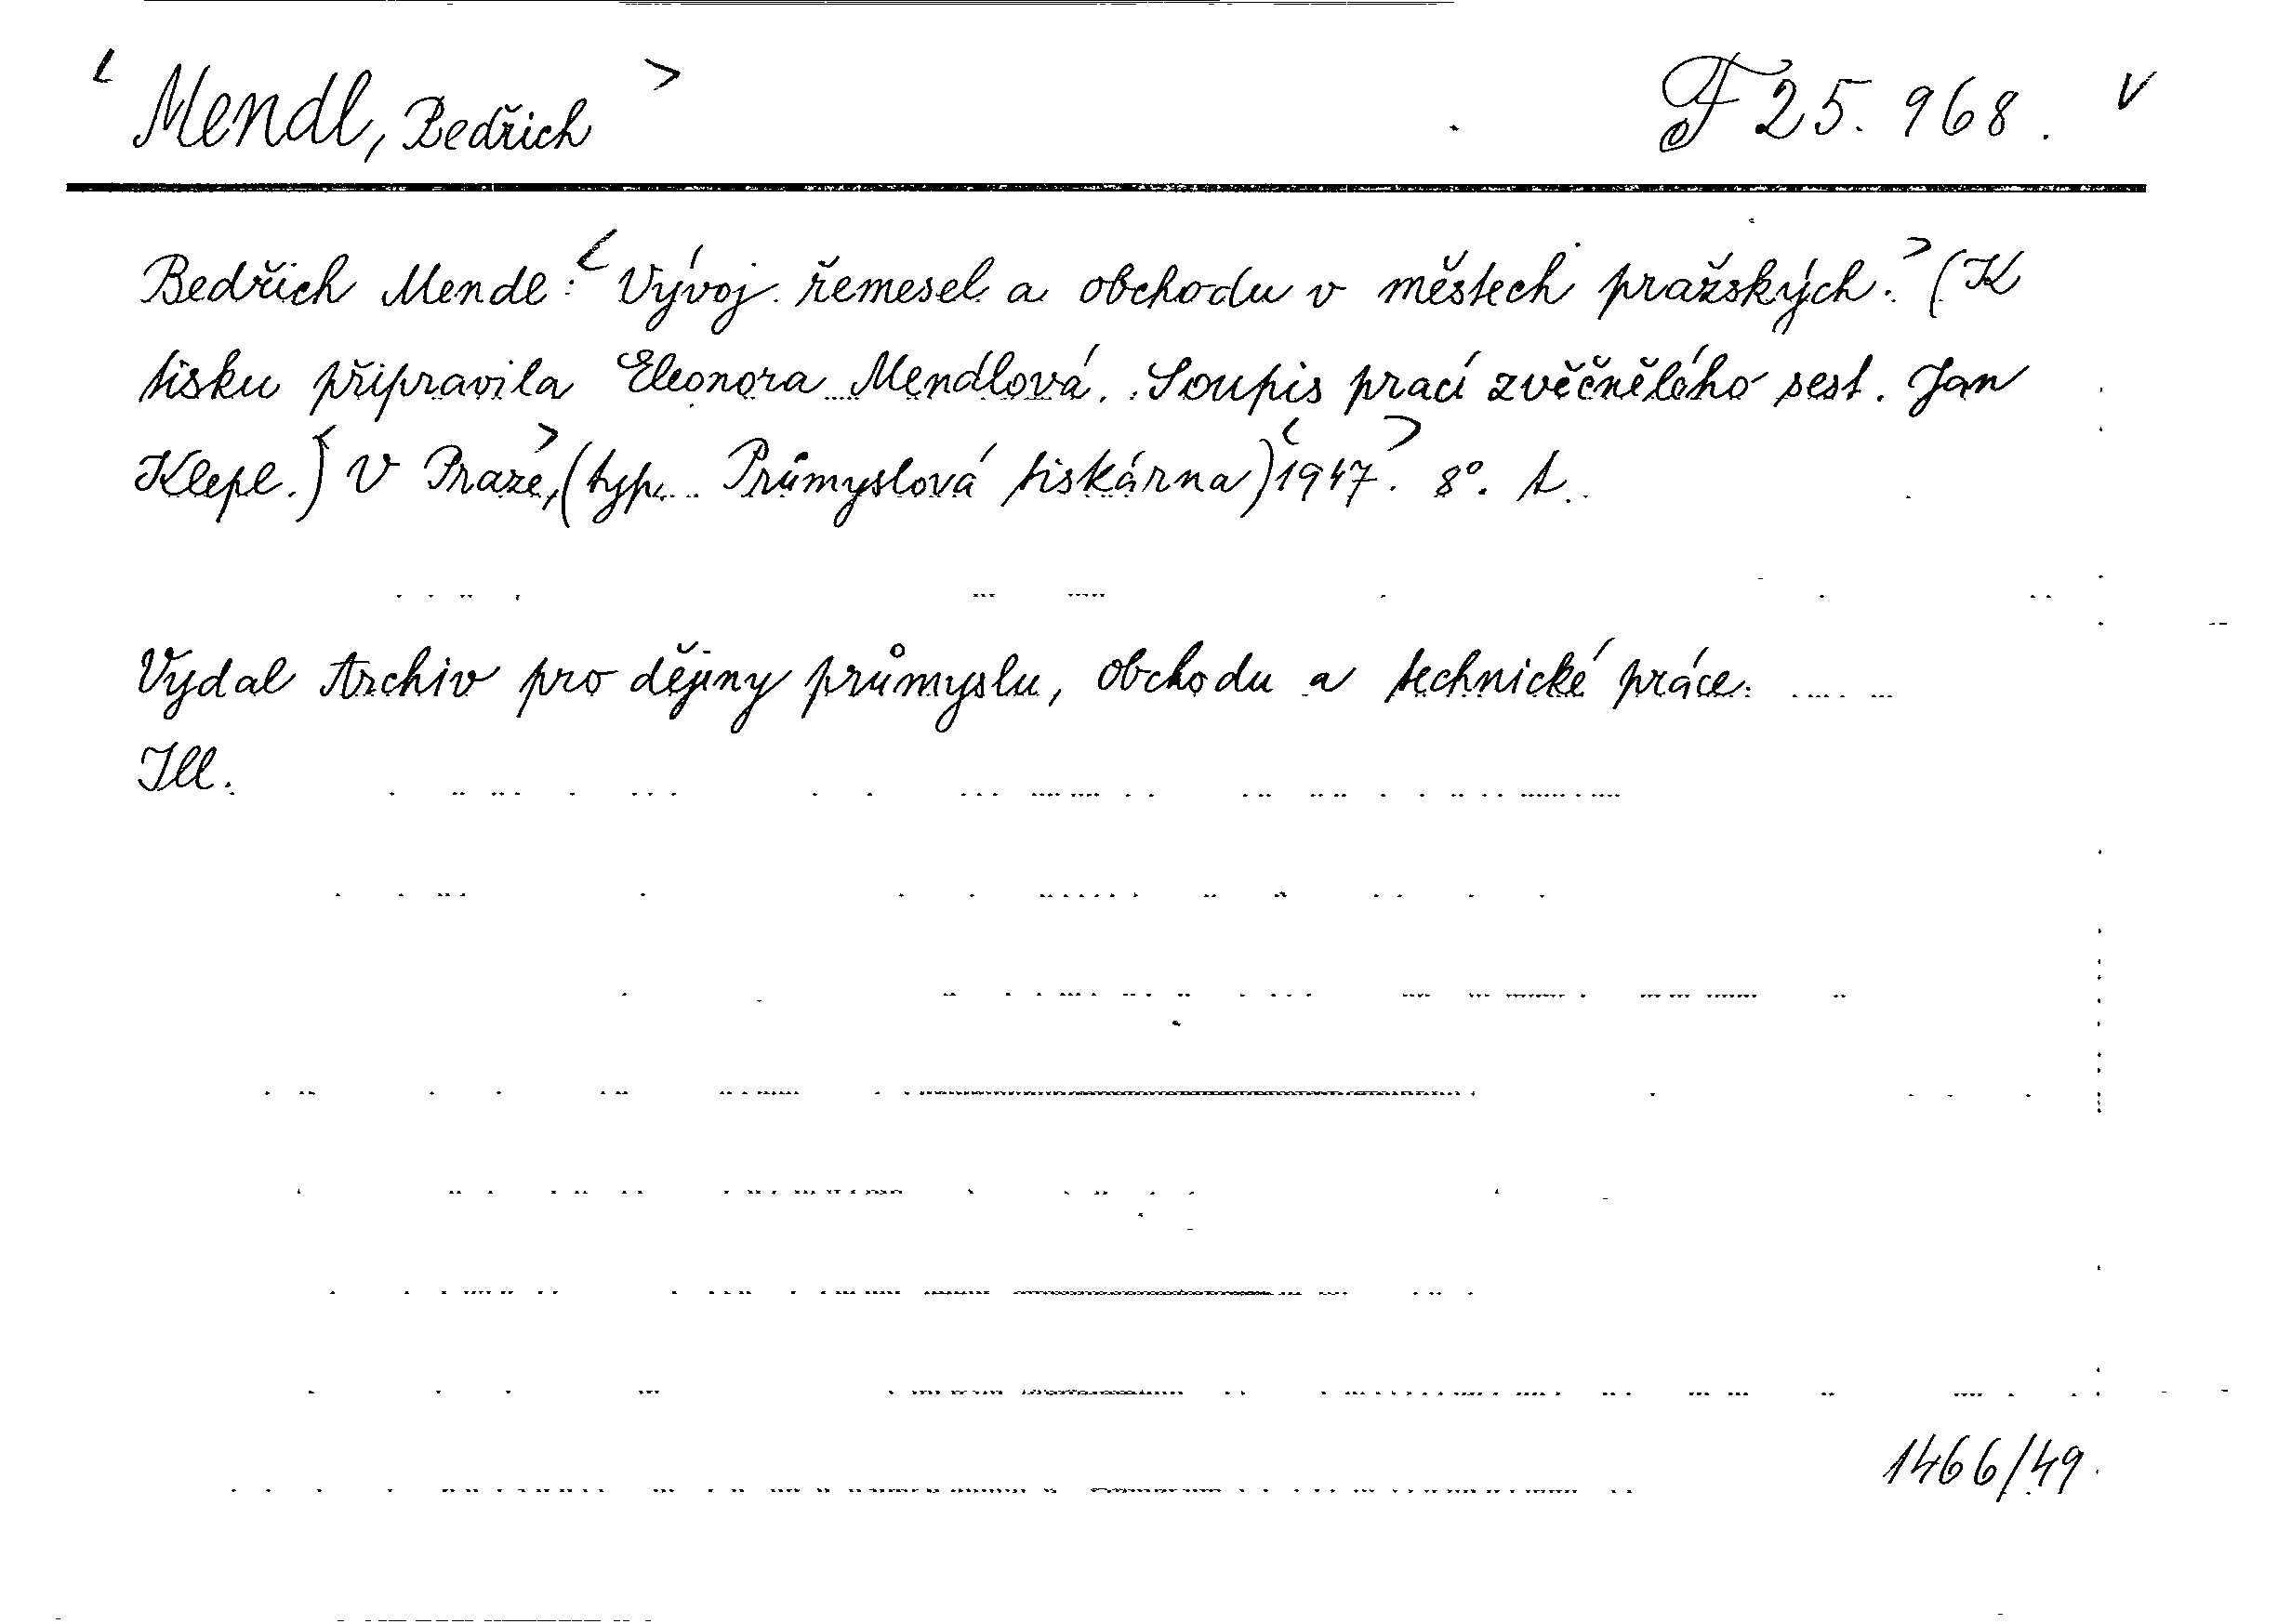 < Mendl, Bedřich > F 25.968. v
Bedřich Mendl: < Vývoj řemesel a obchodu v městech pražských. > (K
tisku připravila Eleonora Mendlová. Soupis prací zvěčnělého sest. Jan
Klepl.) < V Praze, > (typ. Průmyslová tiskárna) < 1947. > 8°. A.
Vydal Archiv pro dějiny průmyslu, obchodu a technické práce.
Ill.
1466/49